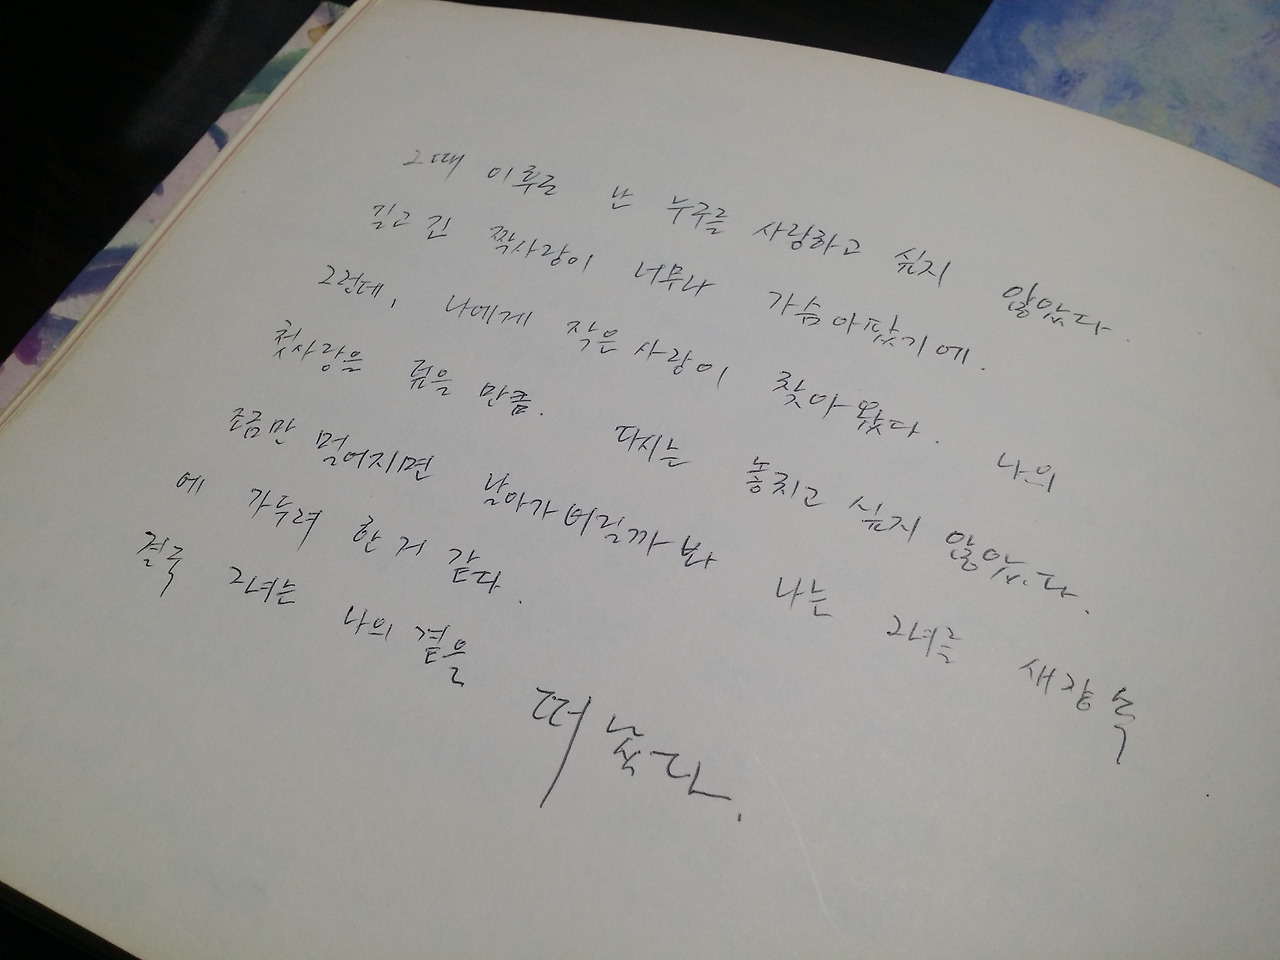 그때 이후로 난 누구를 사랑하고 싶지 않았다.
길고 긴 짝사랑이 너무나 가슴아팠기에.
그런데, 나에게 작은 사랑이 찾아왔다. 나의
첫사랑을 덮을 만큼. 다시는 놓치고 싶지 않았다.
조금만 멀어지면 날아가버릴까봐 나는 그녀를 새장 속
에 가두려 한 거 같다.
결국 그녀는 나의 곁을 떠났다.